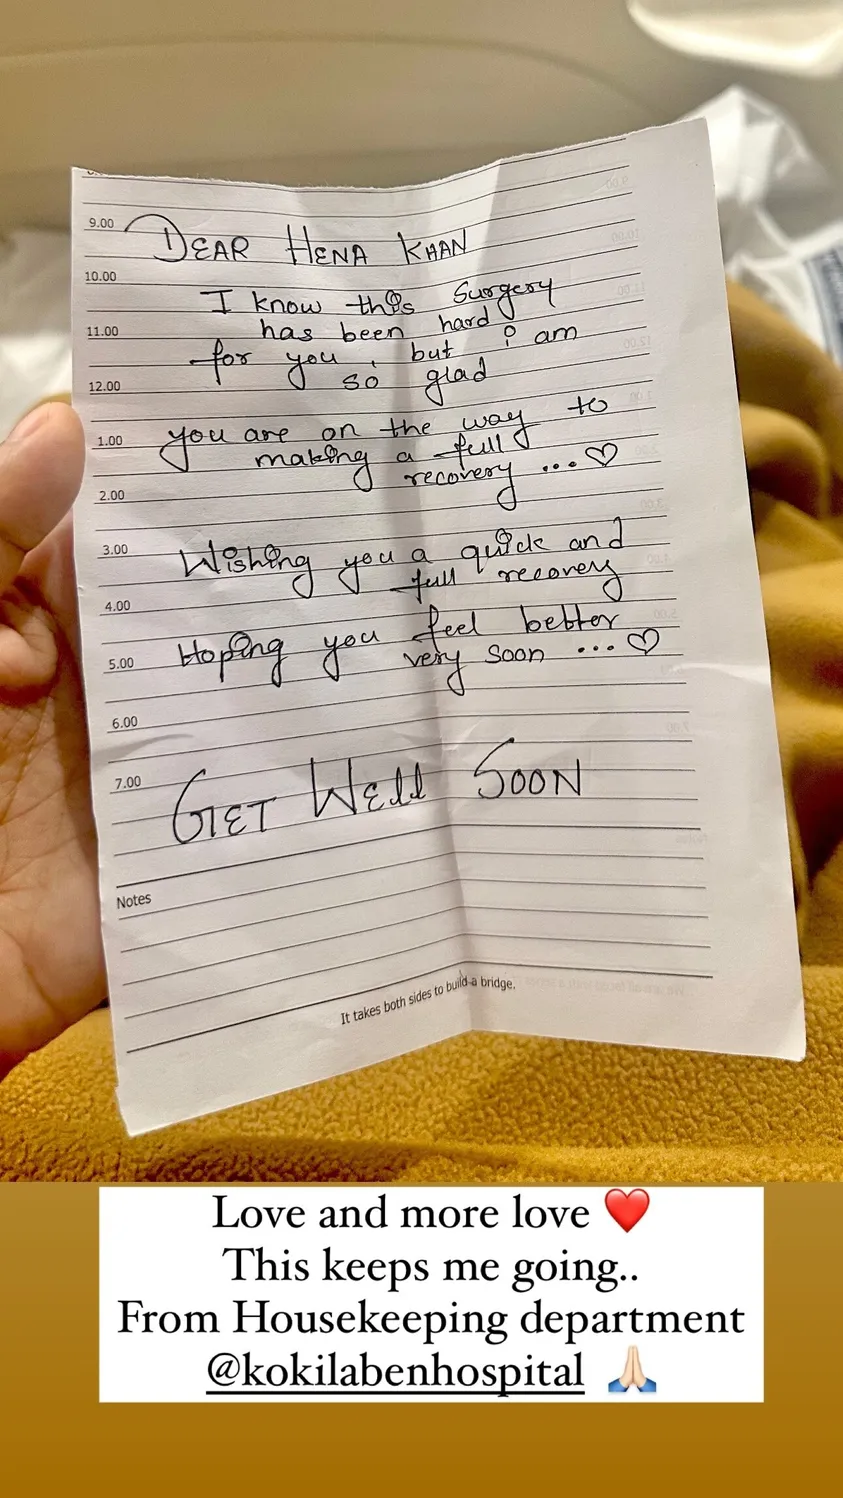 9.00
DEAR HENA KHAN
10.00
I know this surgery
11.00
has been hard
for you, but i am
12.00
so glad
1.00
you are on the way to
making a full
2.00
recovery ...♡
3.00
Wishing you a quick and
4.00
full recovery
5.00
Hoping you feel better
very soon ...♡
6.00
7.00
GET WEll SOON
Notes
It takes both sides to build a bridge.
Love and more love ❤️
This keeps me going..
From Housekeeping department
@kokilabenhospital 🙏🏻